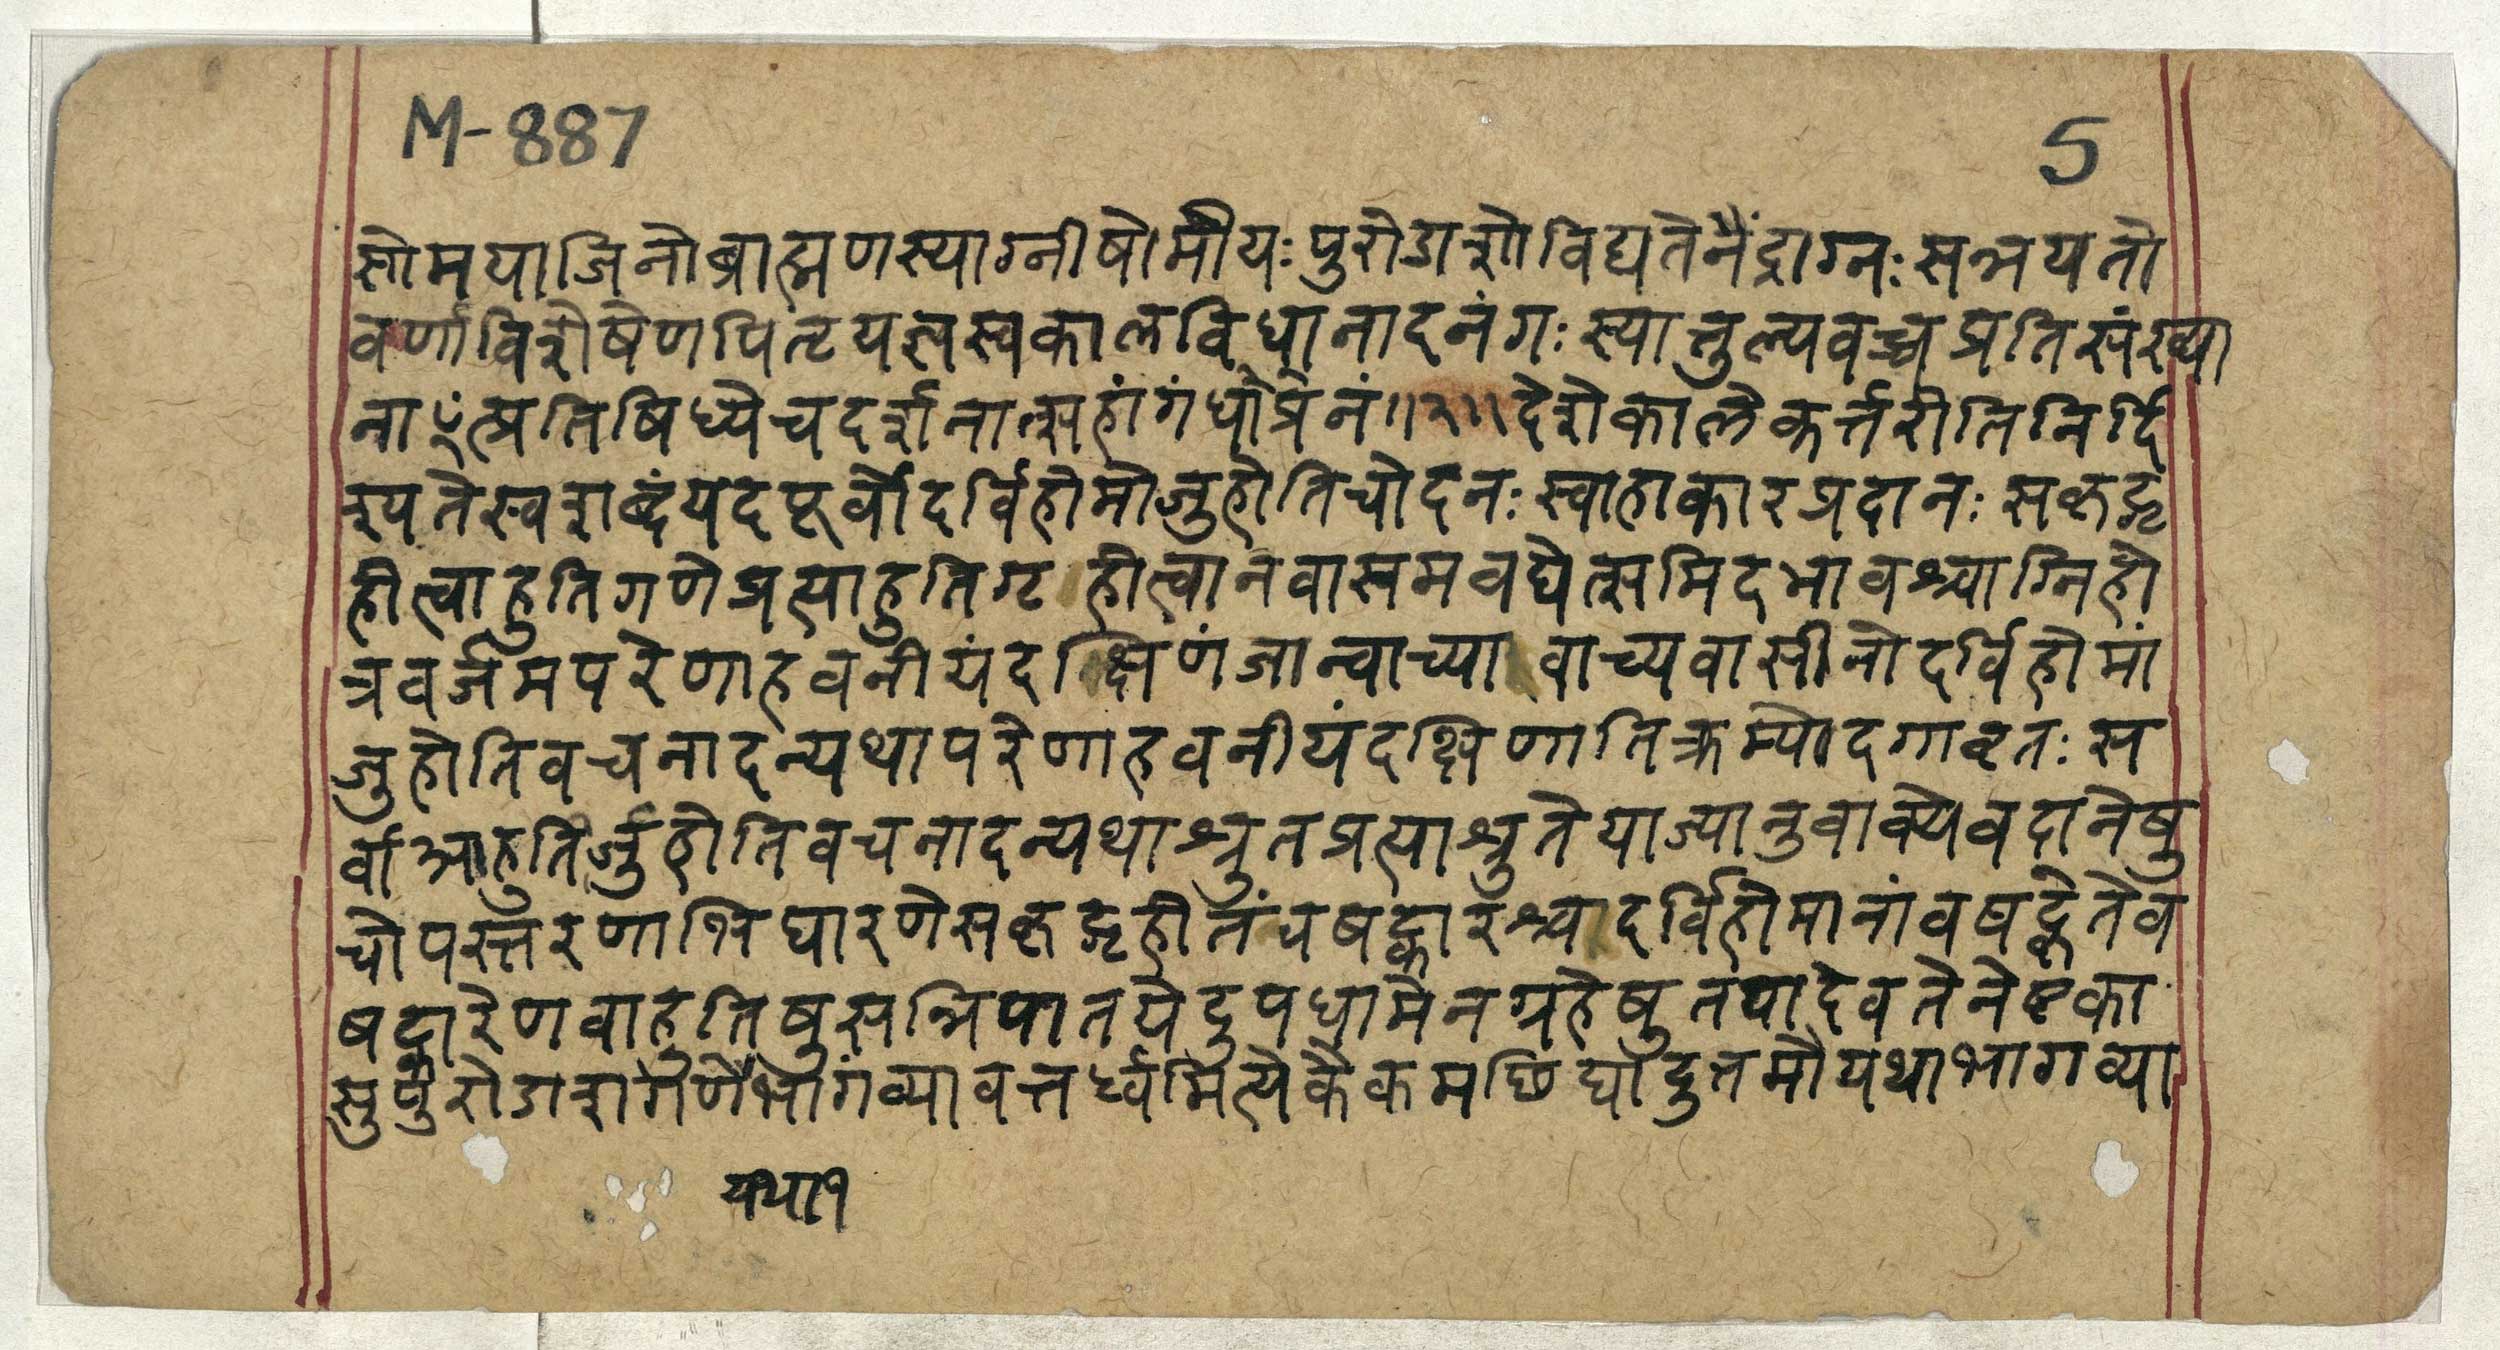 M-887
5
सोमयाजिनोब्राह्मणस्याग्नीषोमीयःपुरोडाशोविद्यतेनैंद्राग्नःसन्नयतो
वर्णाविशेषेणपितृयज्ञस्वकालविधानादनंगःस्यात्तुल्यवच्चप्रतिसंख्या
नात्प्रतिषिध्येचदर्शनात्सहांगंप्रधानं॥२॥देशेकालेकर्त्तरीतिनिर्दि
श्यतेस्वशब्दंयदपूर्वोदर्विहोमोजुहोतिचोदनःस्वाहाकारप्रदानःसकृद्गृ
हीत्वाहुतिगणेप्रत्याहुतिगृहीत्वानवासमवद्येत्समिदभावश्चाग्निहो
त्रवर्जमपरेणाहवनीयंदक्षिणंजान्वाच्यावाच्यवासीनोदर्विहोमां
जुहोतिवचनादन्यथापरेणाहवनीयंदक्षिणातिक्रम्योदगावृतःस
र्वाआहुतिर्जुहोतिवचनादन्यथाश्रुतप्रत्याश्रुतेयाज्यानुवाक्येवदानेषु
चोपस्तरणाभिघारणेसकृद्गृहीतंचषट्कारश्चादर्विहोमानांवषट्कृतेव
षट्कारेणवाहुतिषुसन्निपातयेदुपयामेनग्रहेषुतयादेवतेनेष्टका
सुपुरोडाशगणेभागंव्यावर्त्तध्वमित्येकैकमछिंद्यादुत्तमौयथाभागव्या
यथा१